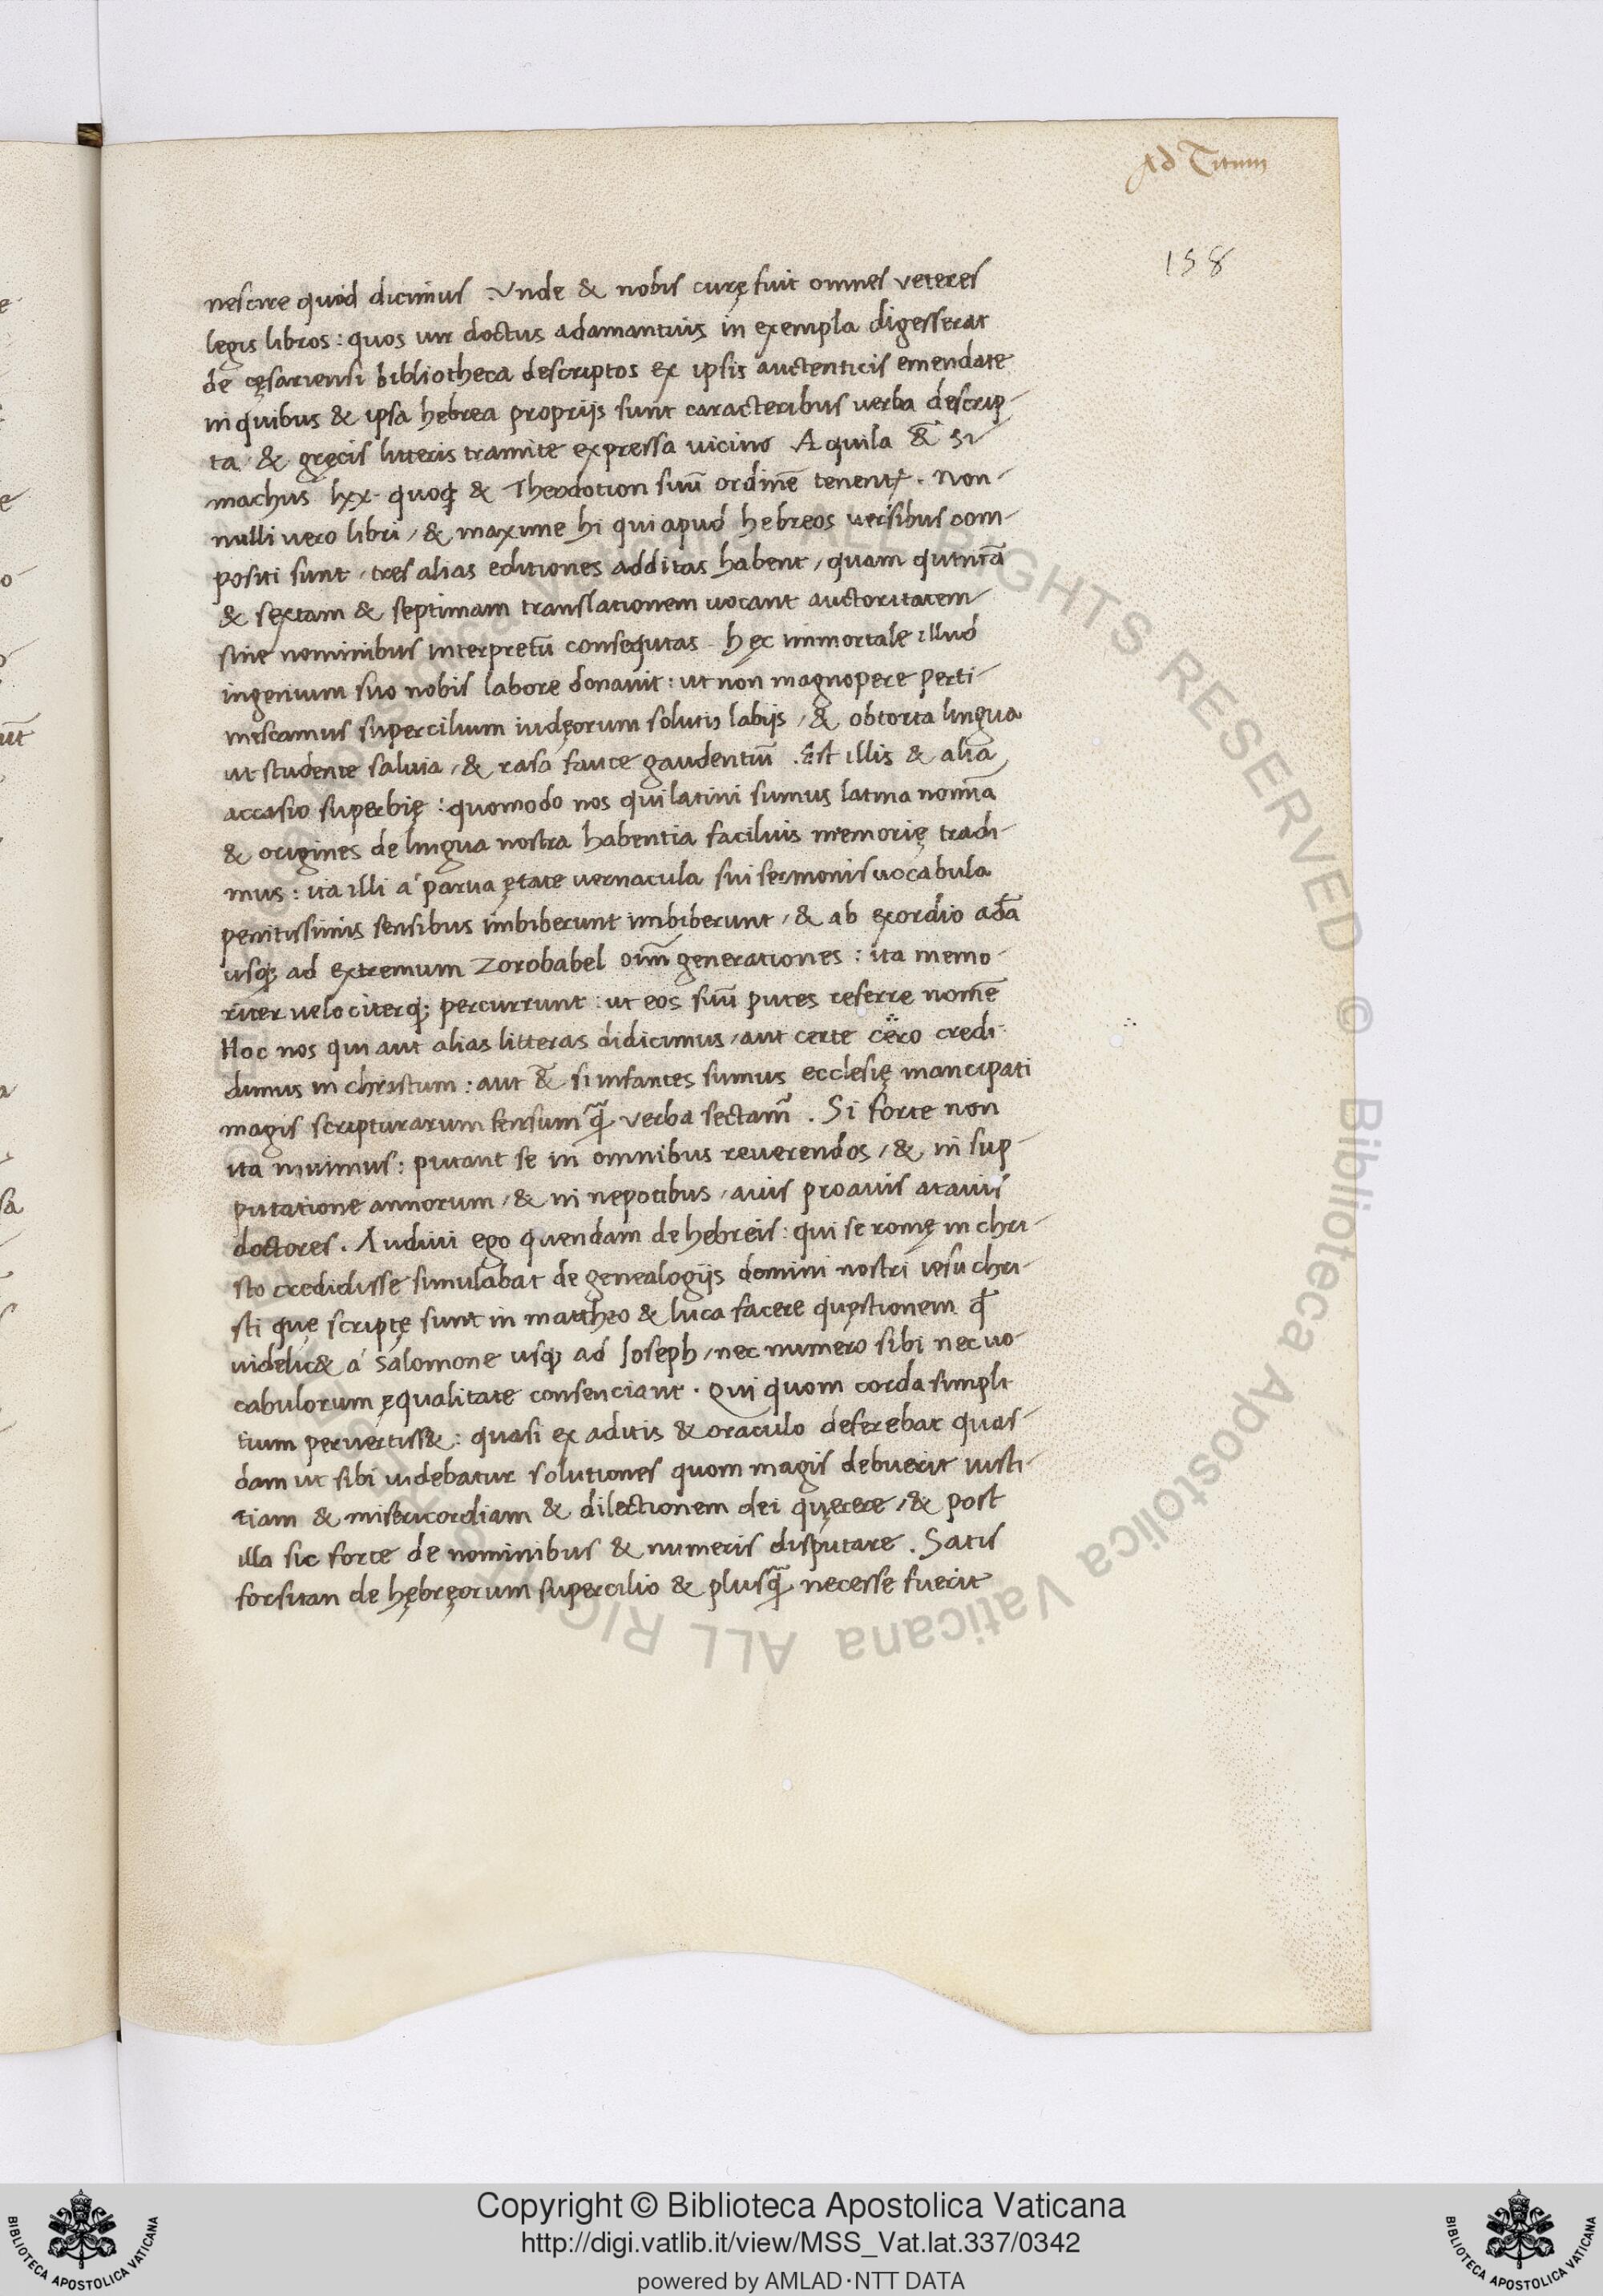 Ad Titum
158
nescire quid dicimus . Vnde & nobis curę fuit omnes veteres
legis libros : quos uir doctus adamantius in exempla digesserat
de cęsariensi bibliotheca descriptos ex ipsis auctenticis emendate
in quibus & ipsa hebrea proprijs sunt caracteribus verba descrip-
ta & gręcis litteris tramite expressa uicino Aquila &̃ Si
machus lxx. quoqꝫ & Theodotion suũ ordinẽ tenent᷑ . Non-
nulli vero libri / & maxime hi qui apud hebreos versibus com-
positi sunt / tres alias editiones additas habent / quam qutnĩã
& sextam & septimam translationem uocant auctoritatem
sine nominibus interpretũ consequtas . hęc immortale illud
ingenium suo nobis labore donauit : ut non magnopere perti-
mescamus supercilium iudęorum solutis labijs / & obtorta lingua
ut studente saliuia / & rasa fauce gaudentiũ . Est illis & alia
accasio superbię : quomodo nos qui latini sumus latina nomĩa
& origines de lingua nostra habentia facilius memorię tradi-
mus : ita illi á parua ętate vernacula sui sermonis uocabula
penitissimis sensibus imbiberunt imbiberunt / & ab exordio adã
usqꝫ ad extremum Zorobabel oim̃ generationes : ita memo-
riter velociterqꝫ percurrunt : ut eos suũ putes referre nomẽ
Hoc nos qui aut alias litteras didicimus / aut certe cëro credi-
dimus in christum : aut &̃ si infantes sumus ecclesię mancipati
magis scripturarum sensum q̃ verba sectam᷑ . Si forte non
ita nuimus : putant se in omnibus reuerendos / & in sup-
putatione annorum / & in nepotibus / auis proauis atauis
doctores . Audiui ego quendam de hebreis : qui se romę in chri-
sto credidisse simulabat de genealogijs domini nostri iesu chri-
sti quę scriptę sunt in mattheo & luca facere quęstionem q̃
uidelic& á salomone usqꝫ ad Joseph / nec numero sibi nec uo-
cabulorum ęqualitate consenciant . Qui quom corda simpli-
tium pervertiss& : quasi ex aditis & oraculo deferebat quas-
dam ut sibi uidebatur solutiones quom magis debuerit iusti-
tiam & misericordiam & dilectionem dei quęrere / & post
illa sic forte de nominibus & numeris disputare . Satis
forsitan de hębręorum supercilio & plusq̃ necesse fuerit
Copyright © Biblioteca Apostolica Vaticana
http://digi.vatlib.it/view/MSS_Vat.lat.337/0342
powered by AMLAD·NTT DATA
BIBLIOTECA APOSTOLICA VATICANA
BIBLIOTECA APOSTOLICA VATICANA